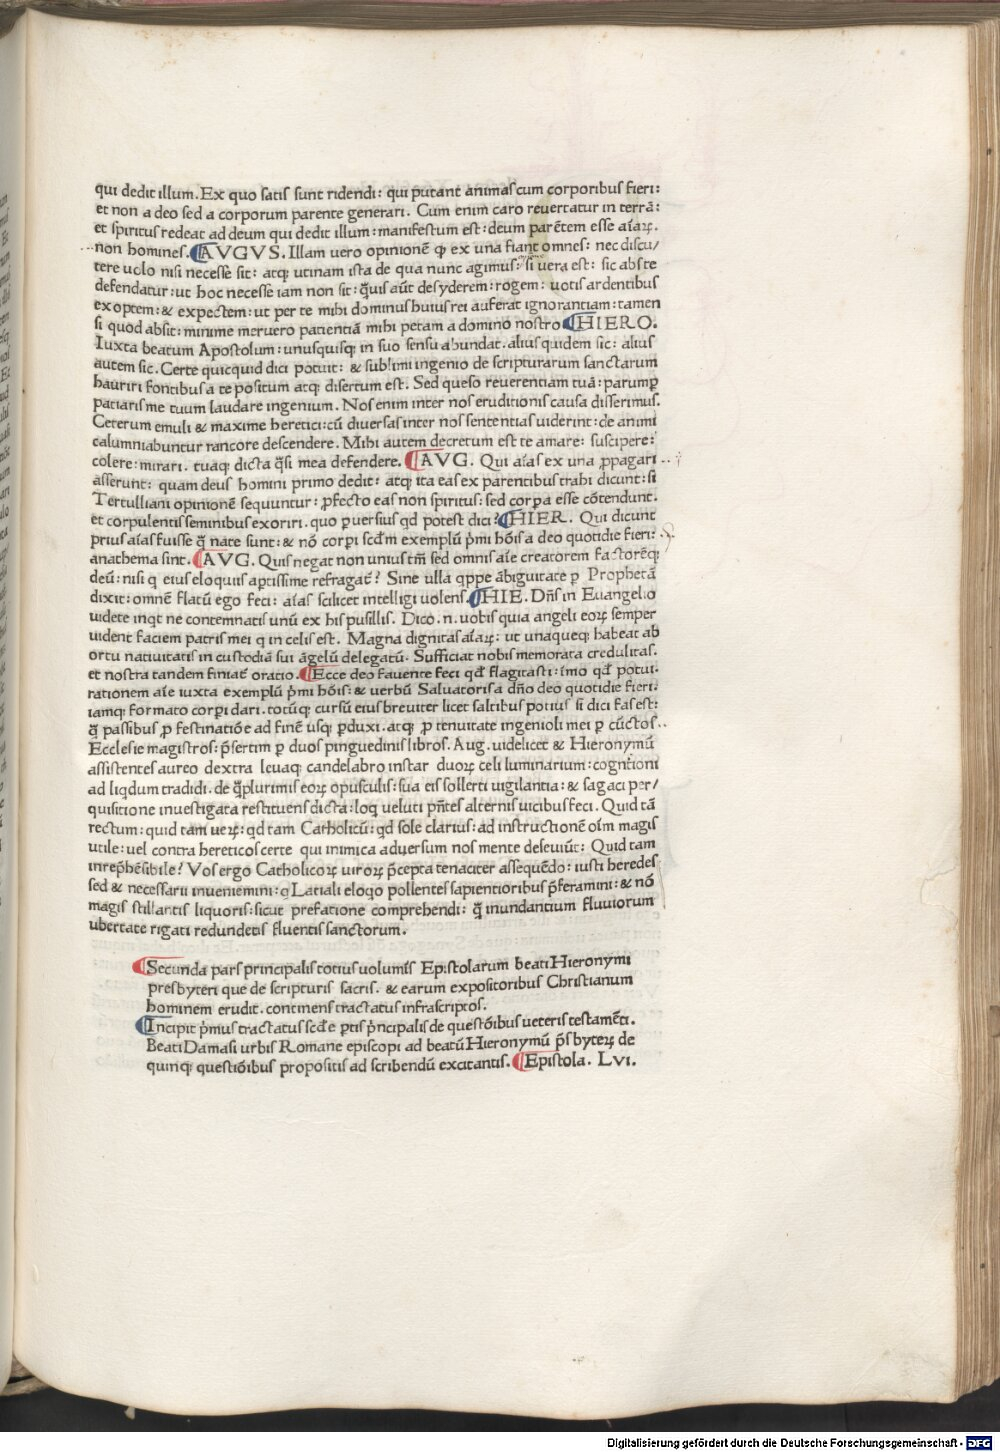 qui dedit illum. Ex quo satis sunt ridendi: qui putant animas cum corporibus fieri:
et non a deo sed a corporum parente generari. Cum enim caro reuertatur in terrā:
et spiritus redeat ad deum qui dedit illum: manifestum est: deum parētem esse aīaꝝ.
non homines. AVGVS. Illam uero opinionē ꝙ ex una fiant omnes: nec discu/
tere uolo nisi necesse sit: atqꝫ utinam ista de qua nunc agimus: si uera est: sic abs te
defendatur: ut hoc necesse iam non sit: q̄uis aūt desyderem: rogem: uotis ardentibus
exoptem: & expectem: ut per te mihi dominus huius rei auferat ignorantiam: tamen
si quod absit: minime meruero patientiā mihi petam a domino nostro HIERO.
Iuxta beatum Apostolum: unusquisqꝫ in suo sensu abundat. alius quidem sic: alius
autem sic. Certe quicquid dici potuit: & sublimi ingenio de scripturarum sanctarum
hauriri fontibus a te positum atqꝫ disertum est. Sed queso reuerentiam tuā: parumꝑ
patiaris me tuum laudare ingenium. Nos enim inter nos eruditionis causa disserimus.
Ceterum emuli & maxime heretici: cū diuersas inter nos sententias uiderint: de animi
calumniabuntur rancore descendere. Mihi autem decretum est te amare: suscipere:
colere: mirari. tuaqꝫ dicta q̄si mea defendere. AVG. Qui aīas ex una ꝓpagari
asserunt: quam deus homini primo dedit: atqꝫ ita eas ex parentibus trahi dicunt: si
Tertulliani opinionē sequuntur: ꝓfecto eas non spiritus: sed corꝑa esse cōtendunt.
et corpulentis seminibus exoriri. quo ꝑuersius qd potest dici? HIER. Qui dicunt
prius aīas fuisse q̄ nate sunt: & nō corꝑi scd̄m exemplū p̄mi hōis a deo quotidie fieri:
anathema sint. AVG. Quis negat non unius tm̄ sed omnis aīe creatorem factorēqꝫ
deū: nisi q eius eloquiis aptissime refragat̄? Sine ulla qppe ābiguitate ꝑ Prophetā
dixit: omnē flatū ego feci: aīas scilicet intelligi uolens. HIE. Dn̄s in Euangelio
uidete inqt ne contemnatis unū ex his pusillis. Dico .n. uobis quia angeli eoꝝ semper
uident faciem patris mei q in celis est. Magna dignitas aīaꝝ: ut unaqueqꝫ habeat ab
ortu natiuitatis in custodiā sui āgelū delegatū. Sufficiat nobis memorata credulitas.
et nostra tandem finiat̄ oratio. Ecce deo fauente feci qd̄ flagitasti: imo qd̄ potui.
rationem aīe iuxta exemplū p̄mi hōis: & uerbū Saluatoris a dn̄o deo quotidie fieri:
iamqꝫ formato corꝑi dari. totūqꝫ cursū eius breuiter licet saltibus potius si dici fas est:
q̄ passibus ꝓ festinatiōe ad finē usqꝫ ꝑduxi. atqꝫ ꝓ tenuitate ingenioli mei ꝑ cūctos
Ecclesie magistros: p̄sertim ꝑ duos pinguedinis libros. Aug. uidelicet & Hieronymū
assistentes aureo dextra leuaqꝫ candelabro instar duoꝝ celi luminarium: cognitioni
ad liqdum tradidi. de q̄plurimis eoꝝ opusculis: sua eis sollerti uigilantia: & sagaci per/
quisitione inuestigata restituens dicta: loq ueluti pn̄tes alternis uicibus feci. Quid tā
rectum: quid tam ueꝝ: qd tam Catholicū: qd sole clarius: ad instructionē oīm magis
utile: uel contra hereticos certe qui inimica aduersum nos mente deseuiūt: Quid tam
inrep̄hēsibile? Vos ergo Catholicoꝝ uiroꝝ p̄cepta tenaciter assequēdo: iusti heredes
sed & necessarii inueniemini: q Latiali eloqo pollentes sapientioribus p̄feramini: & nō
magis stillantis liquoris: sicut prefatione comprehendi: q̄ inundantium fluuiorum
ubertate rigati redundetis fluentis sanctorum.
Secunda pars principalis totius uolumīs Epistolarum beati Hieronymi
presbyteri que de scripturis sacris. & earum expositoribus Christianum
hominem erudit. continens tractatus infrascriptos.
Incipit p̄mus tractatus scd̄e ꝑtis p̄ncipalis de questōibus ueteris testamēti.
Beati Damasi urbis Romane episcopi ad beatū Hieronymū p̄sbyteꝝ de
quinqꝫ questiōibus propositis ad scribendū excitantis. Epistola. LVI.
Digitalisierung gefördert durch die Deutsche Forschungsgemeinschaft - DFG